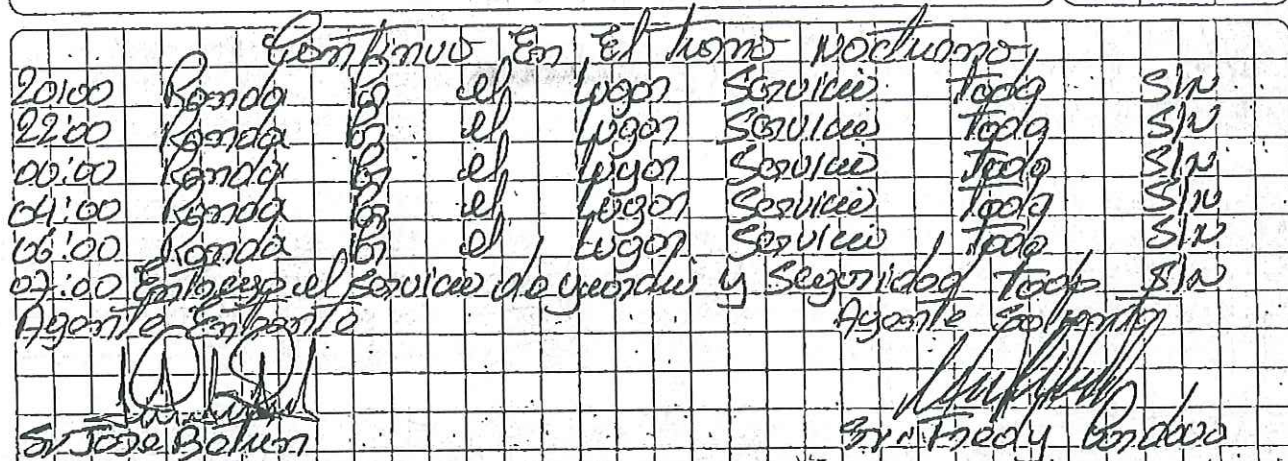 Continuo En El turno nocturno,
20:00 Ronda Por el lugar Servicio Todo S/N
22:00 Ronda Por el lugar Servicio Todo S/N
00:00 Ronda Por el lugar Servicio Todo S/N
04:00 Ronda Por el lugar Servicio Todo S/N
06:00 Ronda Por el lugar Servicio Todo S/N
07:00 Entrego el Servicio de guardia y Seguridad Todo S/N
Agente Entrante Agente Saliente
Sr. Jose Sr. Fredy Cordova